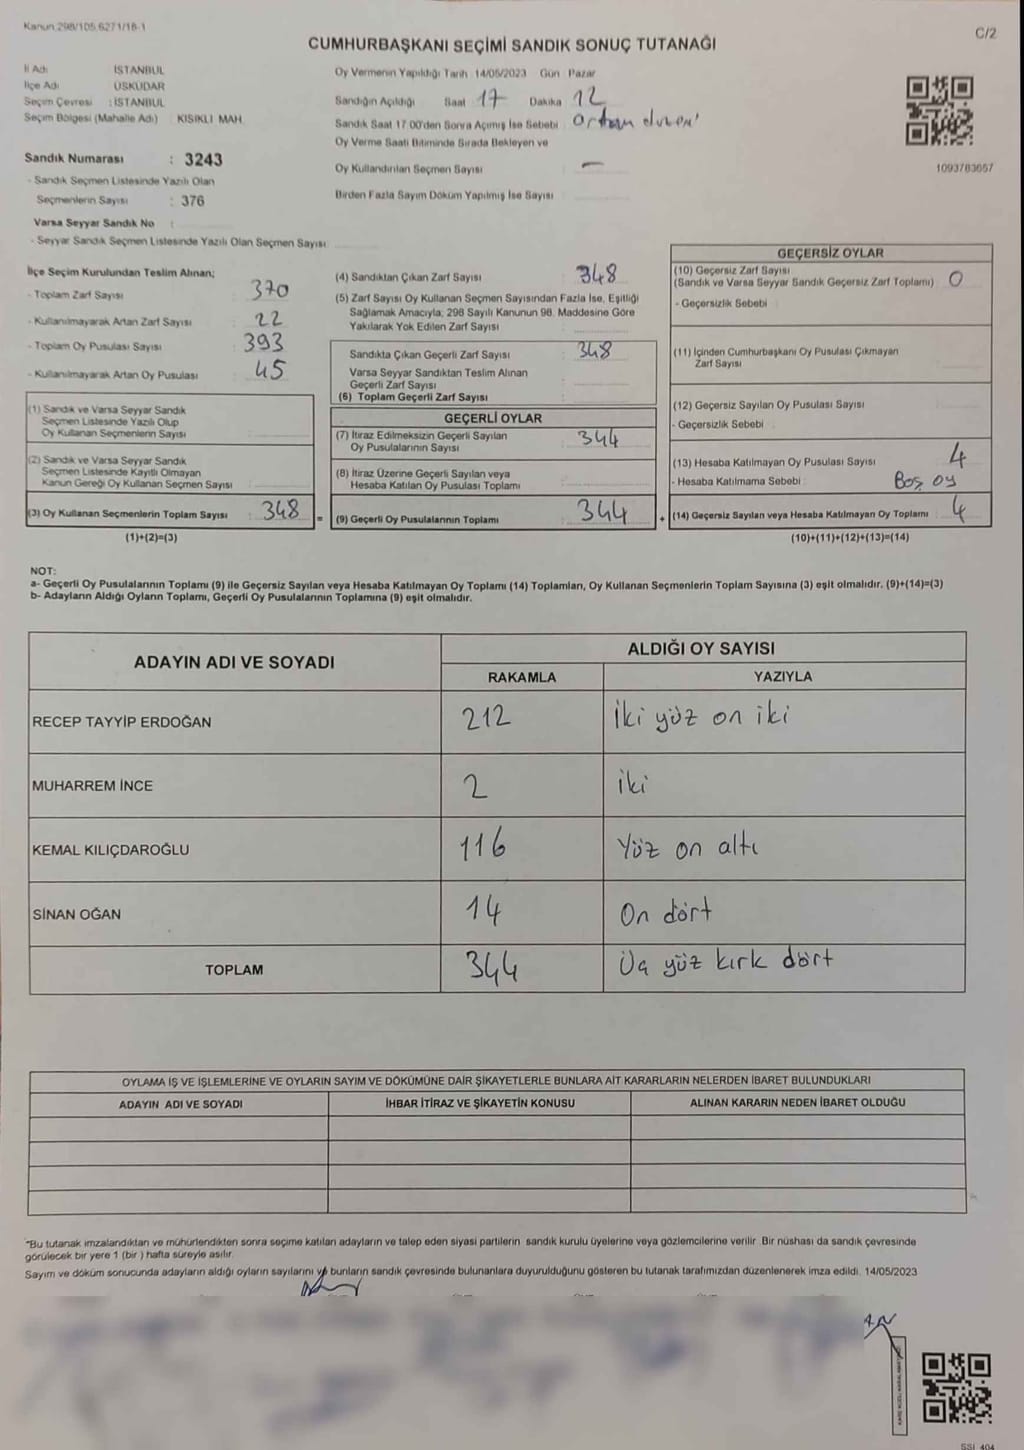 Kanun:298/105,6271/16-1
C/2
CUMHURBAŞKANI SEÇİMİ SANDIK SONUÇ TUTANAĞI
İl Adı : İSTANBUL
İlçe Adı : ÜSKÜDAR
Seçim Çevresi : İSTANBUL
Seçim Bölgesi (Mahalle Adı) : KISIKLI MAH.
Sandık Numarası : 3243
- Sandık Seçmen Listesinde Yazılı Olan
Seçmenlerin Sayısı : 376
Varsa Seyyar Sandık No :
- Seyyar Sandık Seçmen Listesinde Yazılı Olan Seçmen Sayısı
Oy Vermenin Yapıldığı Tarih : 14/05/2023 Gün : Pazar
Sandığın Açıldığı Saat 17 Dakika 12
Sandık Saat 17:00'den Sonra Açılmış İse Sebebi :
Oy Verme Saati Bitiminde Sırada Bekleyen ve
Oy Kullandırılan Seçmen Sayısı : —
Birden Fazla Sayım Döküm Yapılmış İse Sayısı :
1093783657
İlçe Seçim Kurulundan Teslim Alınan;
- Toplam Zarf Sayısı : 370
- Kullanılmayarak Artan Zarf Sayısı : 22
- Toplam Oy Pusulası Sayısı : 393
- Kullanılmayarak Artan Oy Pusulası : 45
(1) Sandık ve Varsa Seyyar Sandık
Seçmen Listesinde Yazılı Olup
Oy Kullanan Seçmenlerin Sayısı :
(2) Sandık ve Varsa Seyyar Sandık
Seçmen Listesinde Kayıtlı Olmayan
Kanun Gereği Oy Kullanan Seçmen Sayısı :
(3) Oy Kullanan Seçmenlerin Toplam Sayısı : 348 =
(1)+(2)=(3)
(4) Sandıktan Çıkan Zarf Sayısı : 348
(5) Zarf Sayısı Oy Kullanan Seçmen Sayısından Fazla İse, Eşitliği
Sağlamak Amacıyla; 298 Sayılı Kanunun 98. Maddesine Göre
Yakılarak Yok Edilen Zarf Sayısı :
Sandıkta Çıkan Geçerli Zarf Sayısı : 348
Varsa Seyyar Sandıktan Teslim Alınan
Geçerli Zarf Sayısı :
(6) Toplam Geçerli Zarf Sayısı :
GEÇERLİ OYLAR
(7) İtiraz Edilmeksizin Geçerli Sayılan : 344
Oy Pusulalarının Sayısı
(8) İtiraz Üzerine Geçerli Sayılan veya
Hesaba Katılan Oy Pusulası Toplamı :
(9) Geçerli Oy Pusulalarının Toplamı : 344 +
GEÇERSİZ OYLAR
(10) Geçersiz Zarf Sayısı
(Sandık ve Varsa Seyyar Sandık Geçersiz Zarf Toplamı) : 0
- Geçersizlik Sebebi :
(11) İçinden Cumhurbaşkanı Oy Pusulası Çıkmayan
Zarf Sayısı :
(12) Geçersiz Sayılan Oy Pusulası Sayısı :
- Geçersizlik Sebebi :
(13) Hesaba Katılmayan Oy Pusulası Sayısı : 4
- Hesaba Katılmama Sebebi : Boş oy
(14) Geçersiz Sayılan veya Hesaba Katılmayan Oy Toplamı : 4
(10)+(11)+(12)+(13)=(14)
NOT:
a- Geçerli Oy Pusulalarının Toplamı (9) ile Geçersiz Sayılan veya Hesaba Katılmayan Oy Toplamı (14) Toplamları, Oy Kullanan Seçmenlerin Toplam Sayısına (3) eşit olmalıdır. (9)+(14)=(3)
b- Adayların Aldığı Oyların Toplamı, Geçerli Oy Pusulalarının Toplamına (9) eşit olmalıdır.
ADAYIN ADI VE SOYADI ALDIĞI OY SAYISI
RAKAMLA YAZIYLA
RECEP TAYYİP ERDOĞAN 212 İki yüz on iki
MUHARREM İNCE 2 iki
KEMAL KILIÇDAROĞLU 116 Yüz on altı
SİNAN OĞAN 14 On dört
TOPLAM 344 Üç yüz kırk dört
OYLAMA İŞ VE İŞLEMLERİNE VE OYLARIN SAYIM VE DÖKÜMÜNE DAİR ŞİKAYETLERLE BUNLARA AİT KARARLARIN NELERDEN İBARET BULUNDUKLARI
ADAYIN ADI VE SOYADI İHBAR İTİRAZ VE ŞİKAYETİN KONUSU ALINAN KARARIN NEDEN İBARET OLDUĞU
*Bu tutanak imzalandıktan ve mühürlendikten sonra seçime katılan adayların ve talep eden siyasi partilerin sandık kurulu üyelerine veya gözlemcilerine verilir. Bir nüshası da sandık çevresinde
görülecek bir yere 1 (bir ) hafta süreyle asılır.
Sayım ve döküm sonucunda adayların aldığı oyların sayılarını ve bunların sandık çevresinde bulunanlara duyurulduğunu gösteren bu tutanak tarafımızdan düzenlenerek imza edildi. 14/05/2023
SSI_404